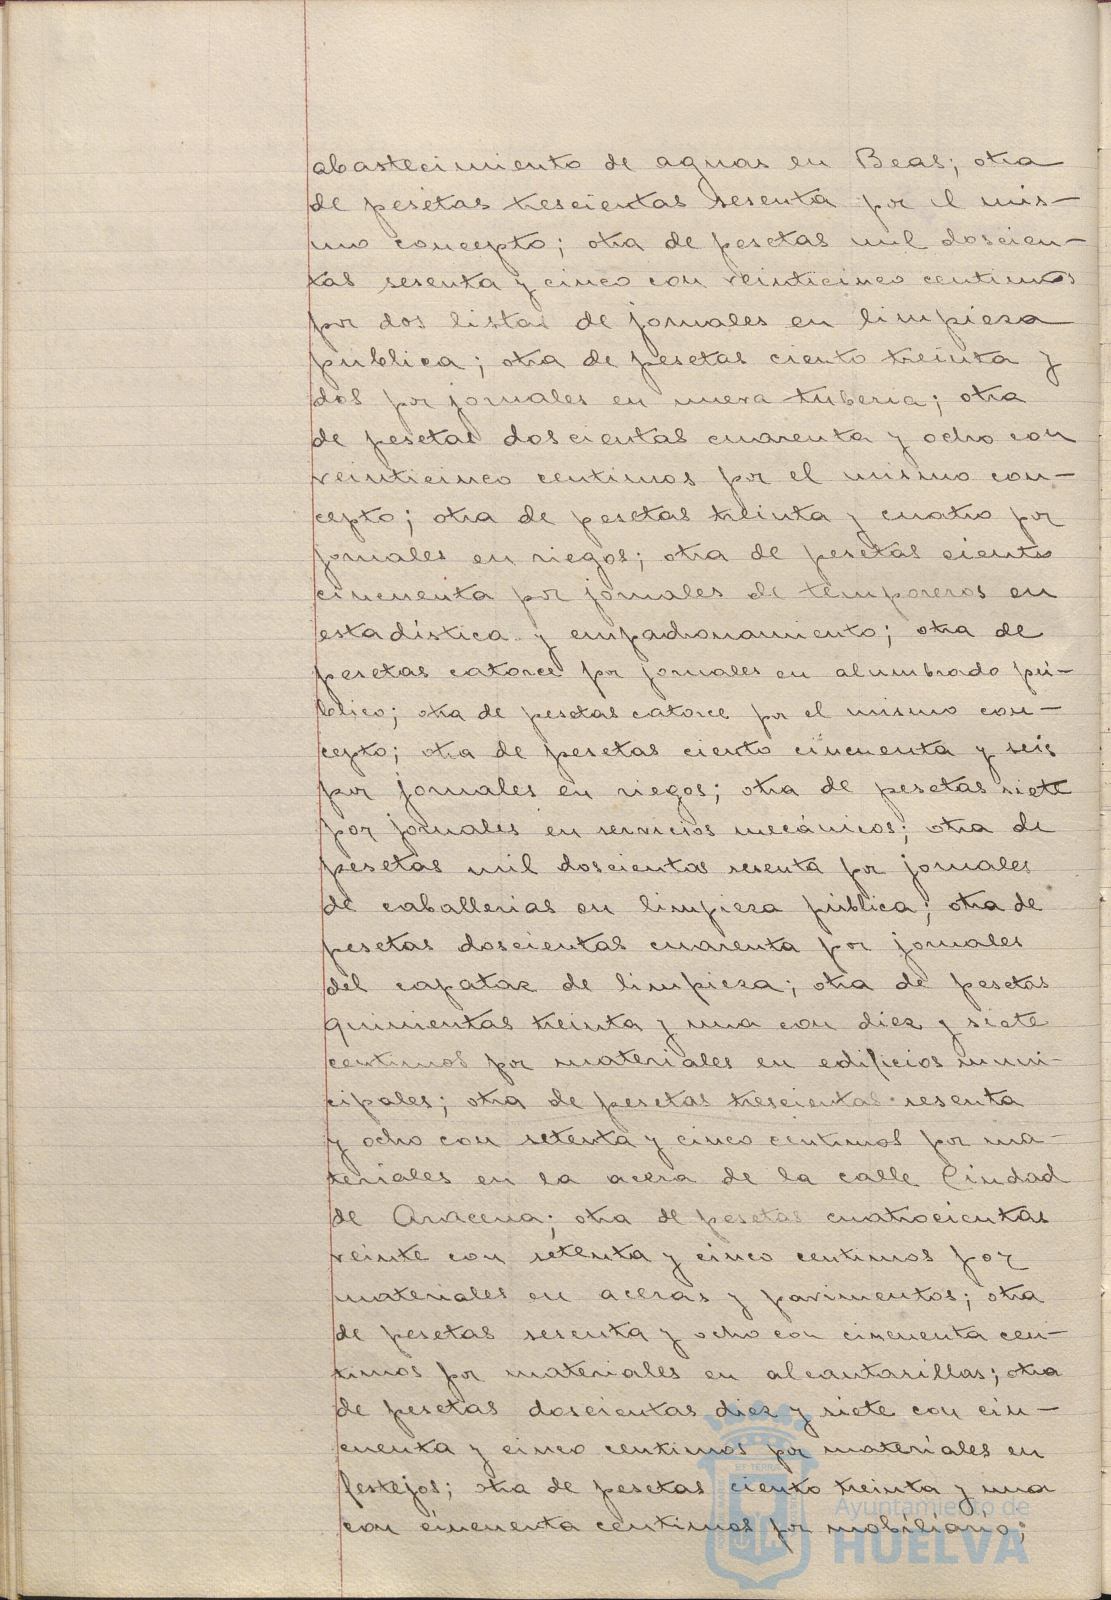 abastecimiento de aguas en Beas; otra
de pesetas trescientas sesenta por el mis-
mo concepto; otra de pesetas mil doscien-
tas sesenta y cinco con veinticinco centimos
por dos listas de jornales en limpieza
pública; otra de pesetas ciento treinta y
dos por jornales en nueva tuberia; otra
de pesetas doscientas cuarenta y ocho con
veinticinco centimos por el mismo con-
cepto; otra de pesetas treinta y cuatro por
jornales en riegos; otra de pesetas ciento
cincuenta por jornales de temporeros en
estadística y empadronamiento; otra de
pesetas catorce por jornales en alumbrado pú-
blico; otra de pesetas catorce por el mismo con-
cepto; otra de pesetas ciento cincuenta y seis
por jornales en riegos; otra de pesetas siete
por jornales en servicios mecánicos; otra de
pesetas mil doscientas sesenta por jornales
de caballerias en limpieza pública; otra de
pesetas doscientas cuarenta por jornales
del capataz de limpieza; otra de pesetas
quinientas treinta y una con diez y siete
centimos por materiales en edificios muni-
cipales; otra de pesetas trescientas sesenta
y ocho con setenta y cinco centimos por ma-
teriales en la acera de la calle Ciudad
de Aracena; otra de pesetas cuatrocientas
veinte con setenta y cinco centimos por
materiales en aceras y pavimentos; otra
de pesetas sesenta y ocho con cincuenta cen-
timos por materiales en alcantarillas; otra
de pesetas doscientas diez y siete con cin-
cuenta y cinco centimos por materiales en
festejos; otra de pesetas ciento treinta y una
con cincuenta centimos por mobiliario;
Ayuntamiento de
HUELVA